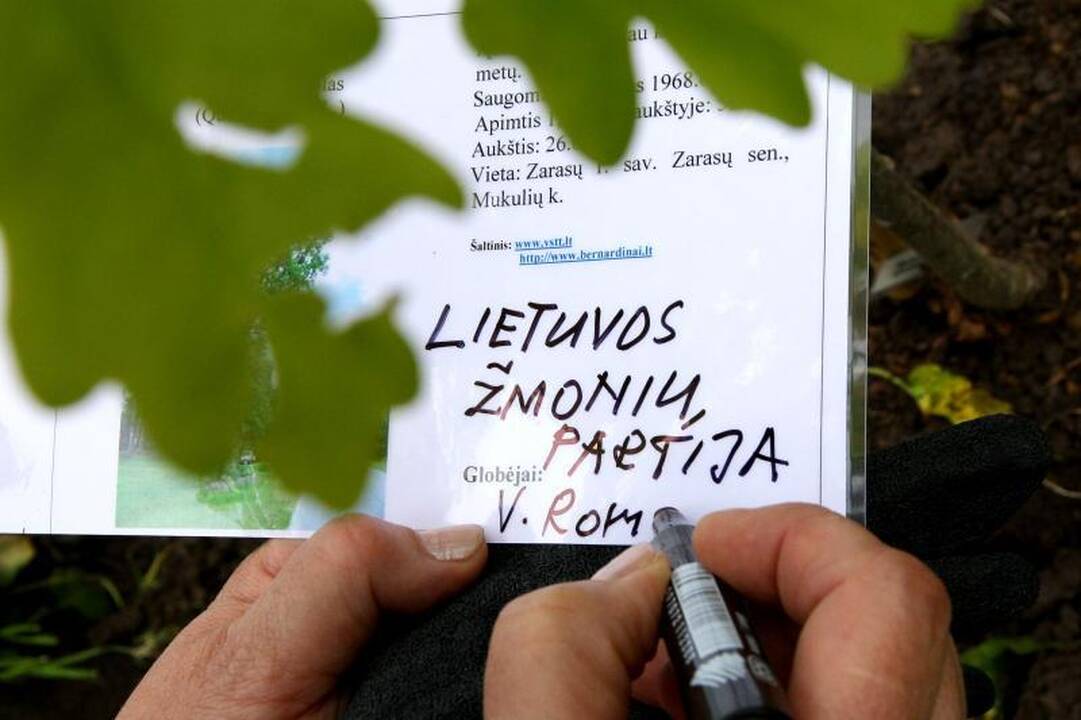 metų.
1968.
Apimtis
Aukštis: 26.
Vieta: Zarasų r. sav. Zarasų sen.,
Mukulių k.
Šaltinis: www.vstt.lt
http://www.bernardinai.lt
LIETUVOS
ŽMONIŲ
PARTIJA
Globėjai:
V. Rom